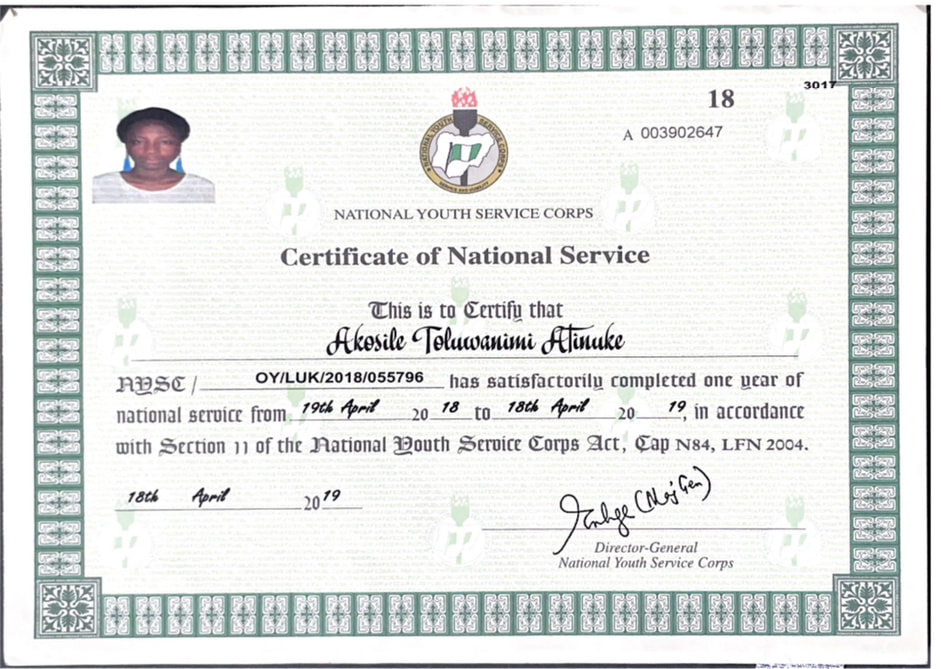 3017
18
A 003902647
NATIONAL YOUTH SERVICE CORPS
SERVICE AND HUMILITY
NATIONAL YOUTH SERVICE CORPS
Certificate of National Service
This is to Certify that
Akosile Toluwanimi Atinuke
NYSC / OY/LUK/2018/055796 has satisfactorily completed one year of
national service from 19th April 20 18 to 18th April 20 19, in accordance
with Section 11 of the National Youth Service Corps Act, Cap N84, LFN 2004.
18th April 2019
(Maj Gen)
Director-General
National Youth Service Corps